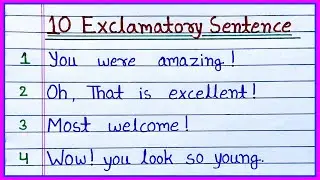 10 Exclamatory Sentence
1 You were amazing!
2 Oh, That is excellent!
3 Most welcome!
4 Wow! you look so young.